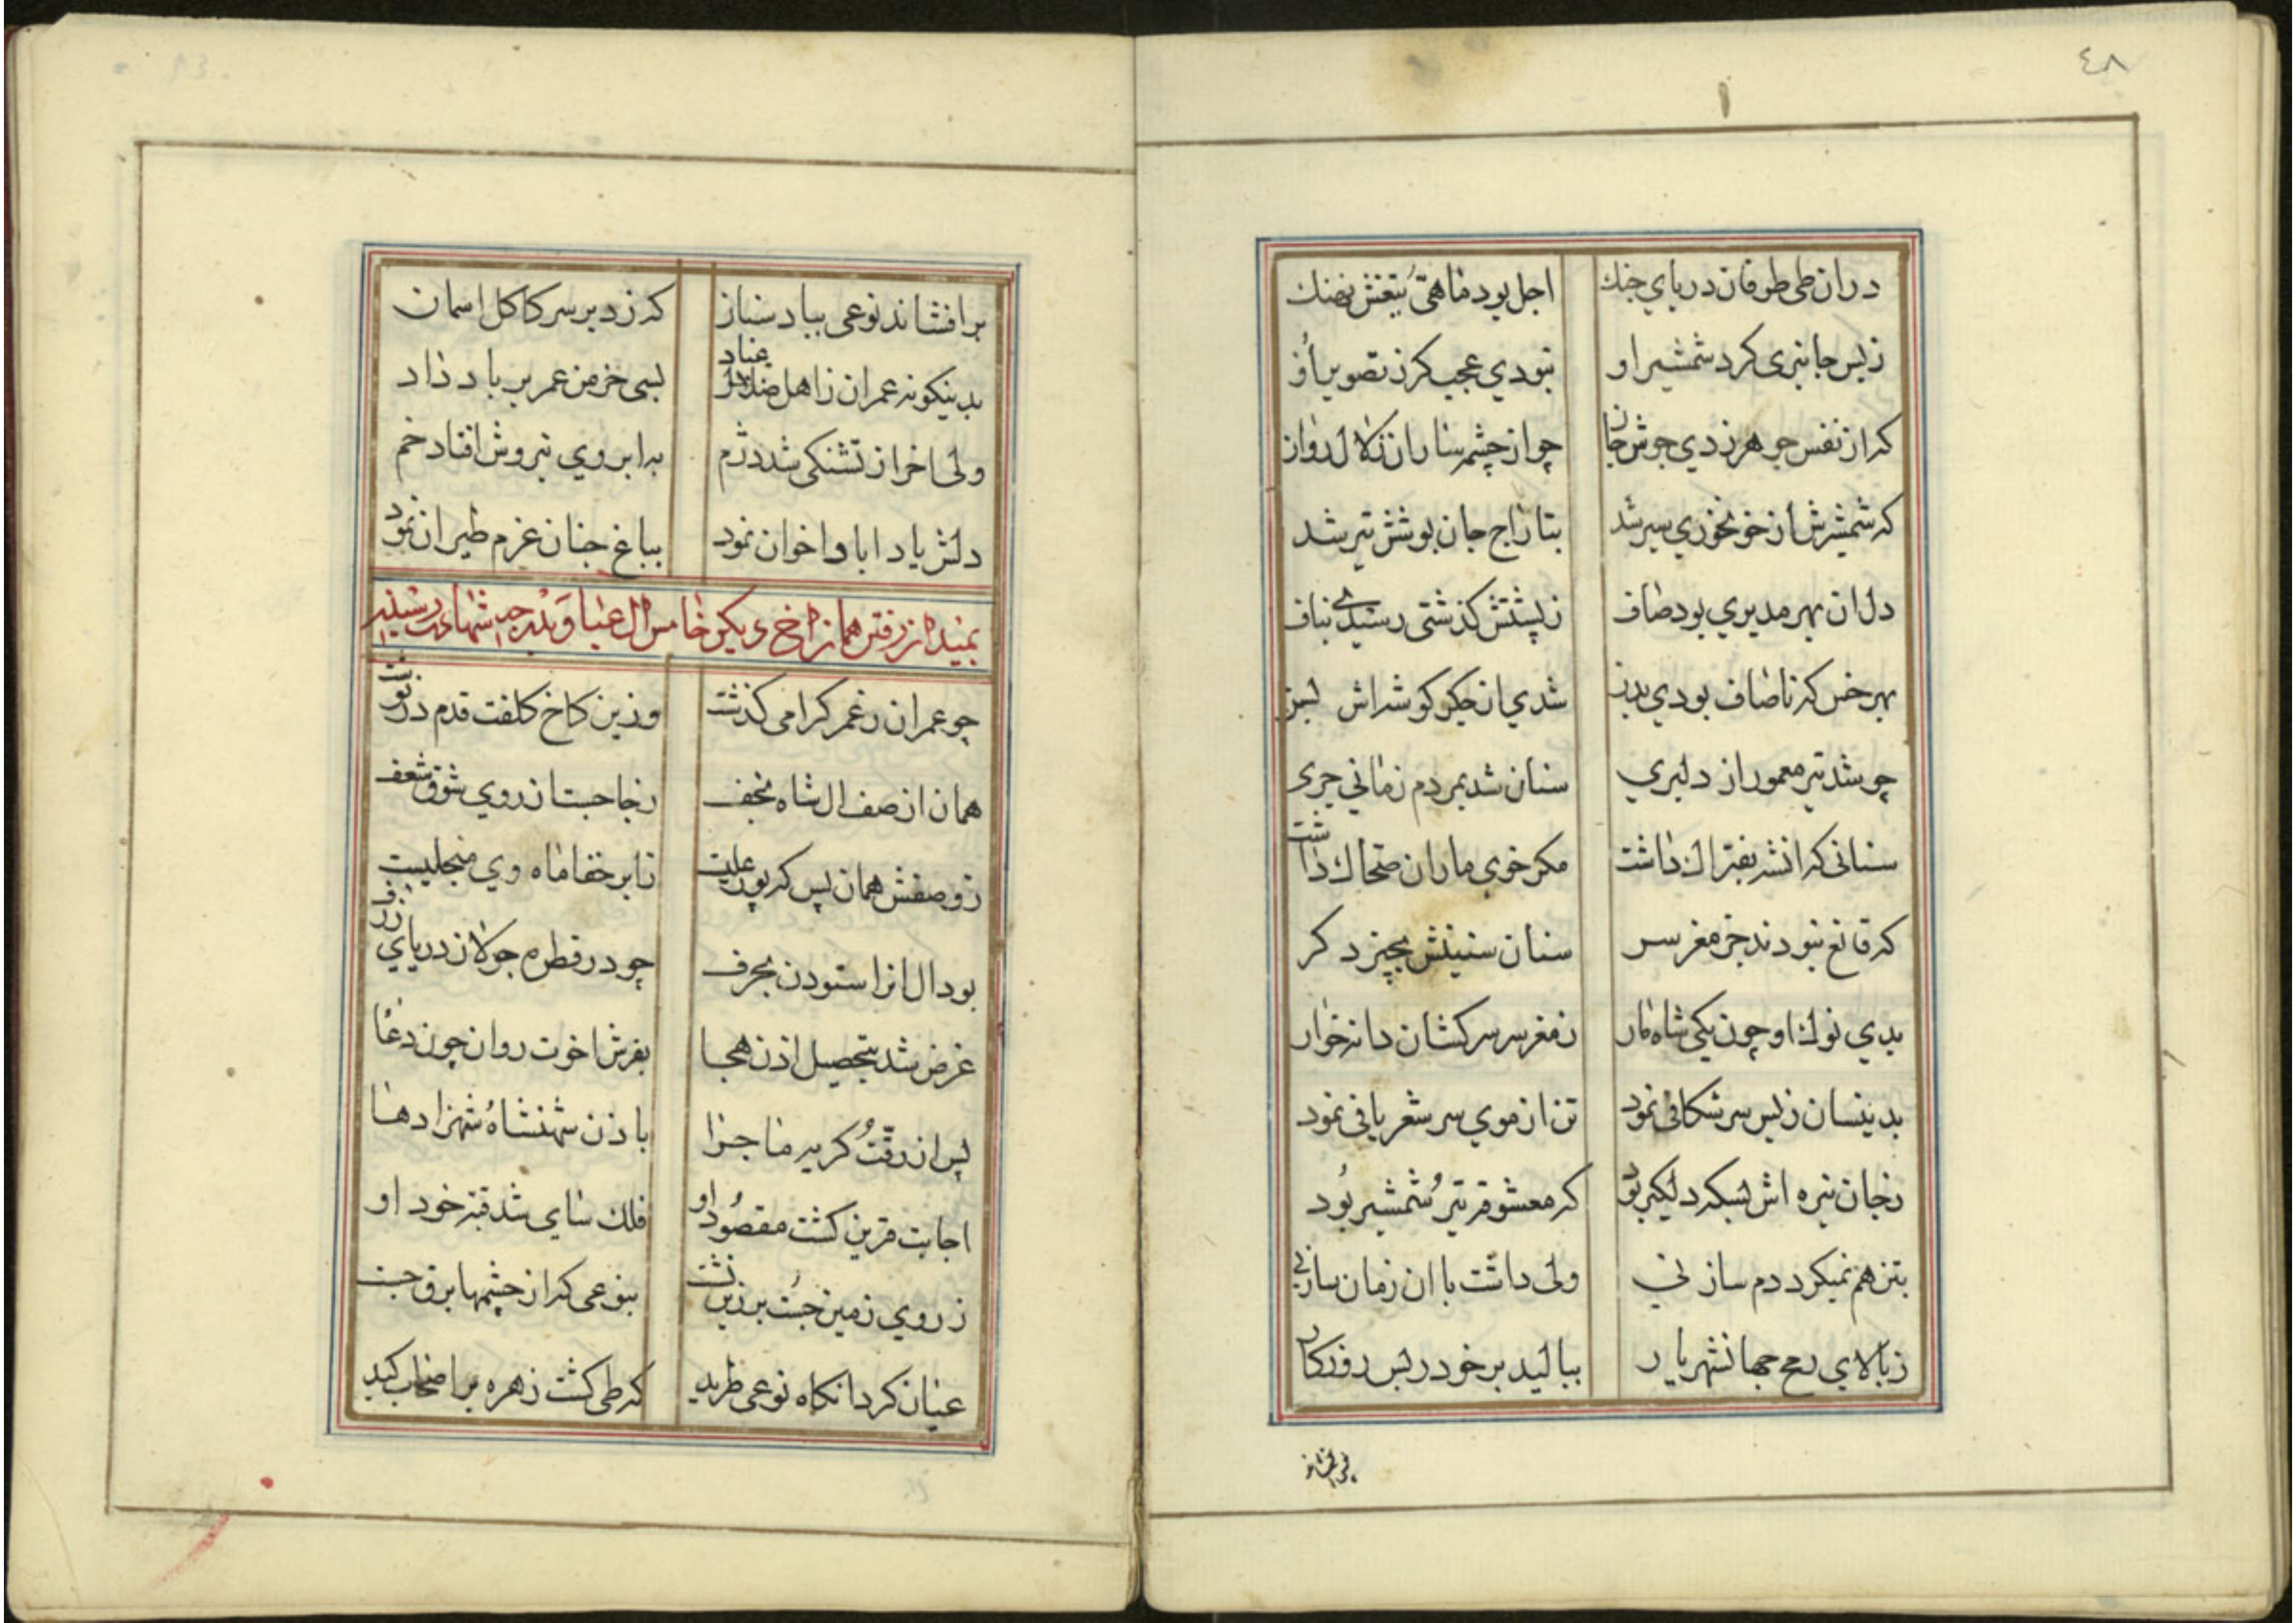 ٤٨
دران طی طوفان دریای جنك اجل بود ماهی تیغش نهنك
زبس جانبری کرد شمشیر او نبودی عجب کر ز تصویر او
که از نفس جوهر زدی جوش جان چو از چشمه ساران زلال روان
که شمشیرش از خونخوری سیر شد بتاراج جان بوشش تیر شد
دل ان بهر مدبری بود صاف ز پشتش کذشتی رسیدی بناف
بهر خس که ناصاف بودی بدن شدی ان جکو کوشه اش
چو شد تیر معمور از دلبری سنان شد بمردم زمانی جری
سنانی که انشه بفتراك داشت مکر خوی ماران ضحاك داشت
که قانع نبودند جز مغز سر سنان سنینش بچیز دکر
بدی نوك او چون یکی شاه مار ز مغز سر سرکشان دانه خوار
بدینسان ز بس سر شکافی نمود تن از موی سر شعر بافی نمود
ز جان نیزه اش بسکه دلکیر بود که معشوقه تیر و شمشیر بود
بتن هم نمیکرد دم ساز نی ولی داشت با ان زمان ساز نی
ز بالای رمح جهانشهریار ببالید بر خود در بس روزکار
برافشاند
برافشاند نوعی بباد سناز که زد بر سر کاکل اسمان
بدینکونه عمران ز اهل عناد بسی خرمن عمر بر باد داد
ولی اخر از تشنکی شد دژم به ابروی نیروش افتاد خم
دلش یاد ابا و اخوان نمود بباغ جنان عزم طیران نمود
بمیدان رفتن همان اخ دیکر خامس ال عبا و بدرجه شهادت رسیدن
چو عمران ز عمر کرامی کذشت وزین کاخ کلفت قدم در نوشت
همان از صف ال شاه نجف ز جا جست از روی شوق و شعف
ز وصفش همان پس که پور علیست ز ابر خفا ماه وی منجلیست
بود ال انرا ستودن بحرف چو در قطره جولان دریای ژرف
غرض شد بتحصیل اذن هجا بفرش اخوت روان چون دعا
پس از رقت و کریه ماجرا باذن شهنشاه شهزادها
اجابت قرین کشت مقصود او فلك سای شد قبه خود او
ز روی زمین جست بر زین نشست بنوعی که از چشمها برق جست
عیان کرد انکاه نوعی طرید که طی کشت زهره بر اصحاب کید